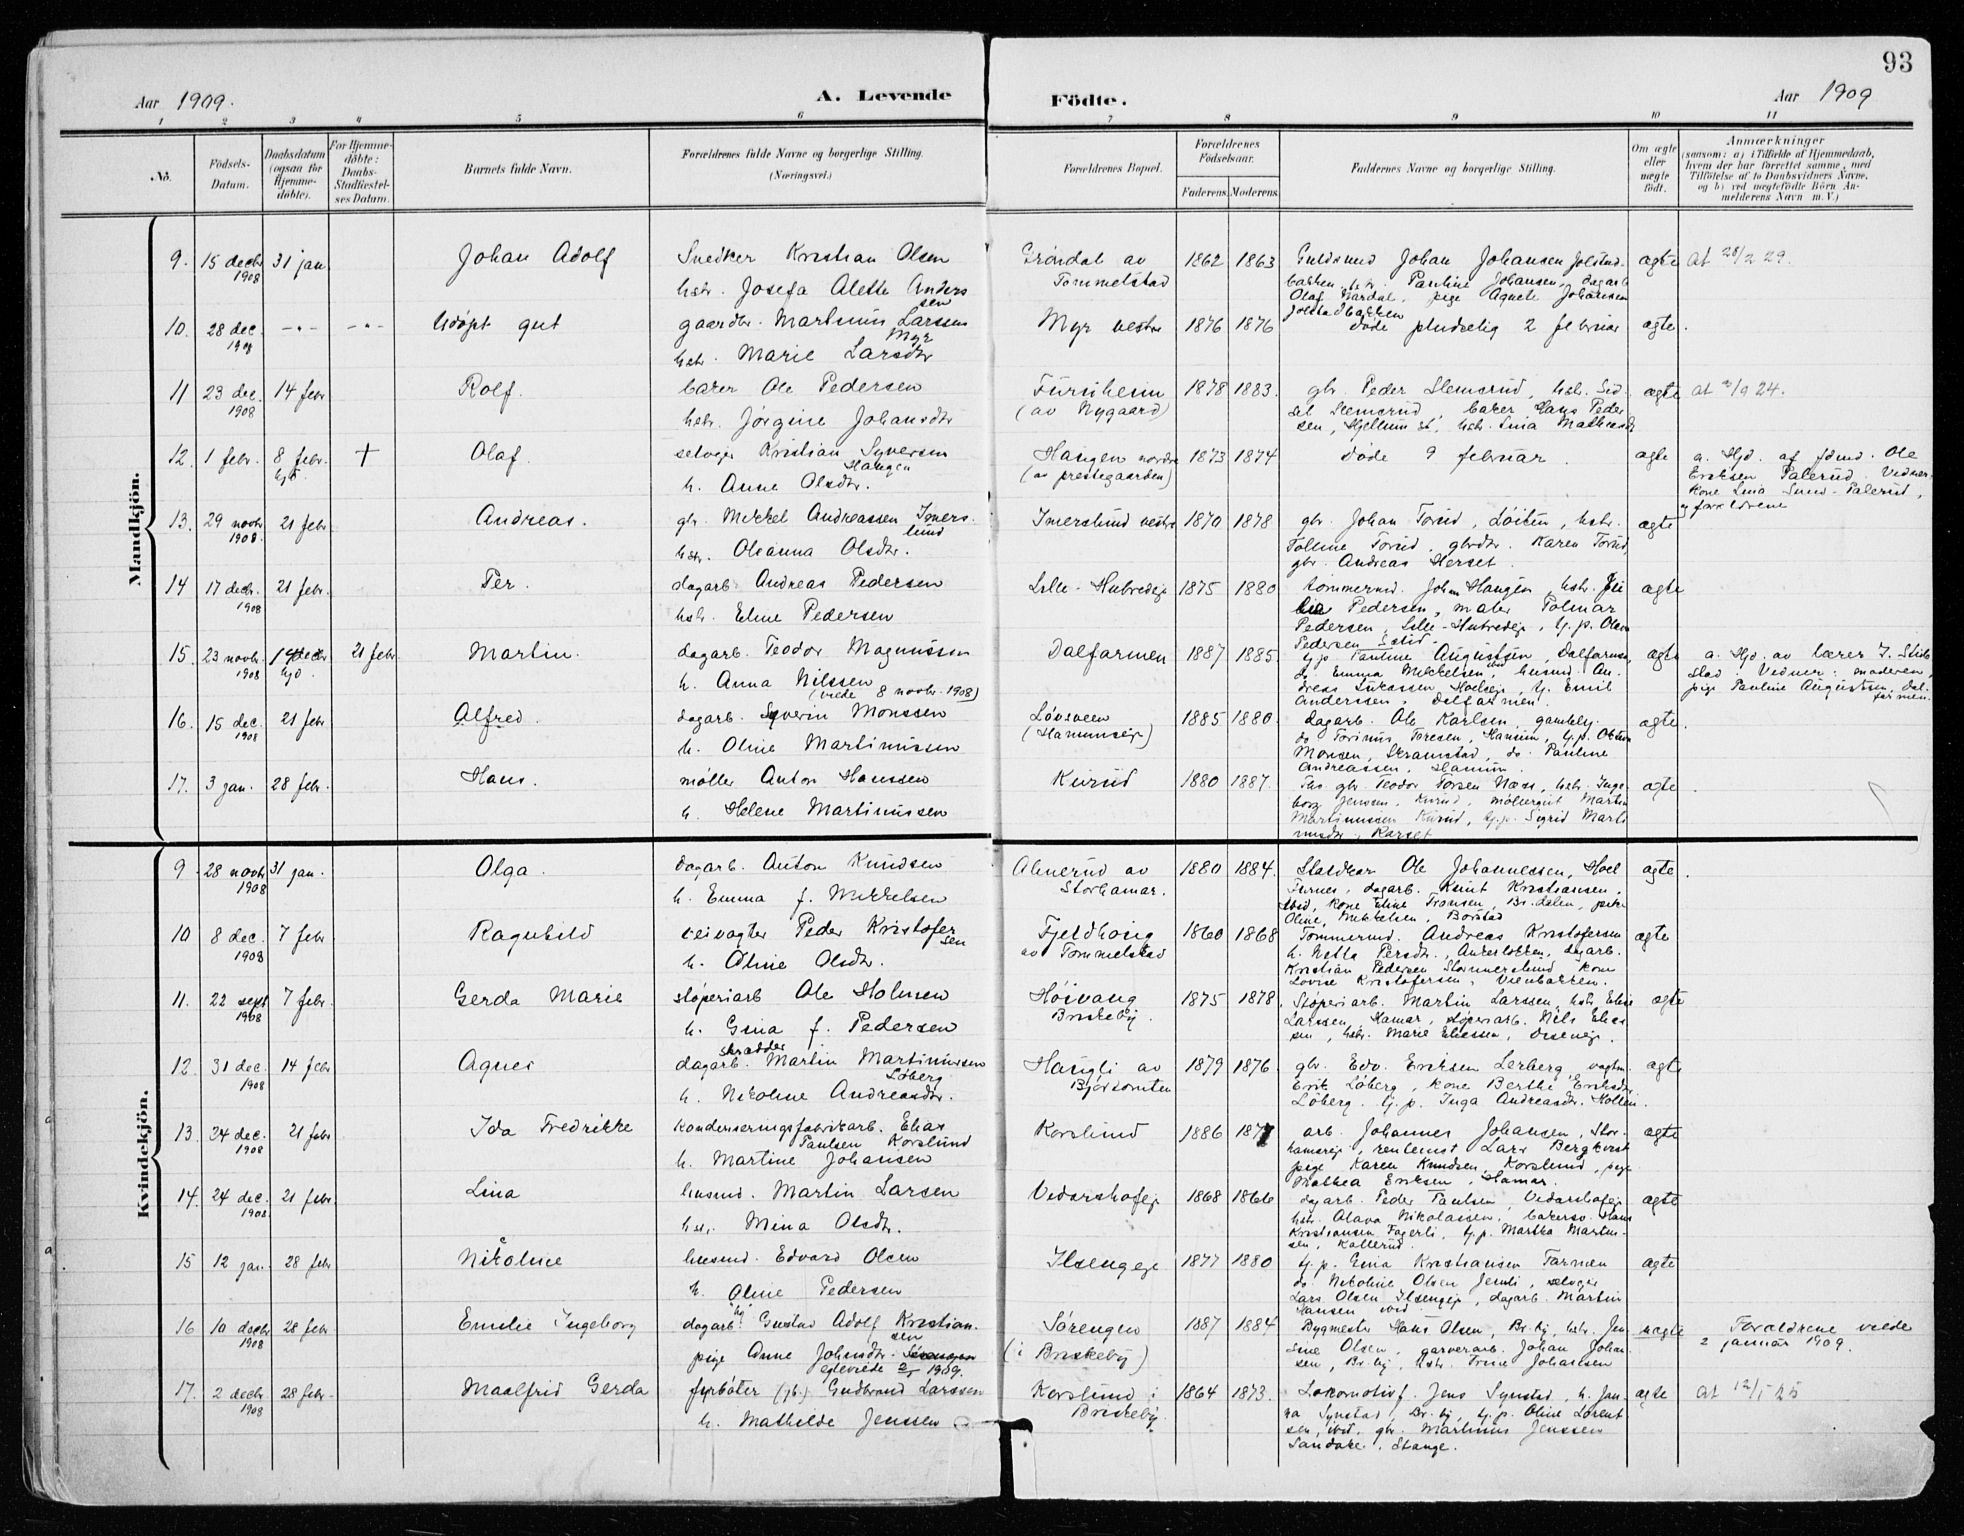 93
Aar 1909.
A. Levende
Födte.
Aar 1909
1 2 3 4 5 6 7 8 9 10 11
No.
Födsels-
Datum.
Daabsdatum
(ogsaa for
Hjemme-
döbte).
For Hjemme-
döbte:
Daabs-
Stadfæstel-
ses Datum.
Barnets fulde Navn.
Forældrenes fulde Navne og borgerlige Stilling.
(Næringsvei.)
Forældrenes Bopæl.
Forældrenes
Födselsaar.
Faderens. Moderens.
Faddernes Navne og borgerlige Stilling.
Om ægte
eller
uægte
födt.
Anmærkninger
(saasom: a) i Tilfælde af Hjemmedaab,
hvem der har forrettet samme, med
Tilföielse af to Daabsvidners Navne,
og b) ved uægtefödte Börn An-
melderens Navn m. V.)
Mandkjön.
9. 15 decbr 1908 31 jan Johan Adolf
Snedker Kristian Olsen
hstr. Josefa Alette Anders
sen
Gröndal av
Tommelstad
1862 1863
Guldsmed Johan Johansen Jolstad-
bakken, hstr. Pauline Johansen, dagarb
Olaf Nardal, pige Agnete Johansen
Jolstadbakken
ægte
At 28/2 29.
10. 28 dec. 1908 Udöpt gut
gaardbr. Martinius Larssen
Myr
hstr. Marie Larsdtr
Myr vestre
1876 1876
döde pludselig 2 februar
ægte.
11 23 dec. 1908 14 febr Rolf.
baker Ole Pedersen
hstr. Jörgine Johansdtr
Furuheim
(av Nygaard)
1878 1883.
gbr. Peder Slemsrud, hstr. Sid-
sel Slemsrud, baker Hans Peder
sen, Hjellum st., hstr. Lina Mathiasdtr
ægte
12. 1 febr. 8 febr. hjd. + Olaf
selveier Kristian Syversen
Haugen
h. Anne Olsdtr.
Haugen nordre
(av prestegaarden)
1873 1874
döde 9 februar.
ægte
a. Hjd. af jdmd. Ole
Eriksen Palerud. Vidner
kone Lina Palerud,
og forældrene
13. 29 novbr 1908. 21 febr. Andreas.
gbr. Mikkel Andreassen Imers-
lund
hstr. Oleanna Olsdtr.
Imerslund vestre
1870 1878
gbr. Johan Torud, Löiten, hstr.
Torud, gbrdtr. Karen Torud,
gbr. Andreas Herset.
ægte
14 17 decbr. 1908 21 febr. Per.
dagarb. Andreas Pedersen
hstr. Eline Pedersen
1875 1880
tömmermd. Johan Haugen, hstr.
Pedersen, maler
Pedersen,
ægte
15. 23 novbr. 1908 hjd. 21 febr Martin.
dagarb. Teodor Magnussen
h. Anna Nilssen
(viede 8 novbr. 1908)
Dalfarmen
1887 1885.
tj.p. Pauline Augustsen, Dalfarmen,
do Emma Mikkelsen, husmd. An-
dreas Lukassen tj. Emil
Anderssen, Dalfarmen.
ægte
a. Hjd. av lærer
Vidner: moderen,
pige Pauline Augustsen, Dal-
farmen.
16. 15 dec. 1908 21 febr Alfred.
dagarb. Syverin Monssen
h. Oline Martinussen
1885 1880.
dagarb. Ole Karlsen,
Andreassen, Hamun.
ægte.
17. 3 jan. 28 febr. Hans.
möller Anton Hanssen
h. Helene Martinussen
Kurud
1880 1887.
gbr. Teodor Torsen Næss, hstr. Inge-
borg Jenssen, Kurud, möllergut Martin
Martinussen Kurud, tj.p. Sigrid Marti
nusdtr, Karset
ægte.
Kvindekjön.
9 28 novbr 1908 31 jan. Olga.
dagarb. Anton Knudsen
h. Emma f. Mikkelsen
Almerud av
Storhamar.
1880 1884.
Ole Johannessen, Hoel
Furnes, dagarb. Knut Kristiansen,
ibid, kone Eline Fransen, Br.dalen, pike
Oline Mikkelsen, Borstad
ægte.
10 8 dec. 1908 7 febr. Ragnhild
veivogter Peder Kristofer
sen
h. Oline Olsdtr.
Fjeldhaug
av Tommelstad
1860 1868
Tömmermd. Andreas Kristofersen
h. Netta Persdtr., dagarb.
Kristian Pedersen kone
Lovise Kristofersen, Vienbakken.
ægte
11. 22 sept. 1908 7 febr. Gerda Marie
stöperiarb Ole Holmsen
h. Gina f. Pedersen
Höivang
Briskeby.
1875 1878.
Stöperiarb. Martin Larssen, hstr. Elise
Larssen, Hamar, stöperiarb. Nils Elias
sen, hstr. Marie Eliassen,
ægte
12. 31 dec. 1908 14 febr Agnes
skrædder
dagarb. Martin Martinussen
Löberg
h. Nikoline Andreasdtr.
Haugli av
Björsomten
1879 1876.
gbr. Edv. Eriksen Lerberg,
Erik Löberg, kone Berthe Eriksdtr
Löberg. tj.p. Inga Andreasdtr.
ægte
13. 24 dec. 1908 21 febr Ida Fredrikke
Kondenseringsfabrikarb. Elias
Paulsen Korslund
h. Martine Johansen
Korslund
1886
arb. Johannes Johansen, Stor-
hamareje, Lars Bergkvist
pige Karen Knudsen, Korslund, pige
Mathea Eriksen, Hamar.
ægte
14. 24 dec. 1908. 21 febr. Lina
husmd. Martin Larsen
hst. Mina Olsdtr.
Vidarshofeje
1868 1866
dagarb. Peder Paulsen, Vidarshofeje
hstr. Olava Nikolassen, bakersv. Hans
Kristiansen Fagerli, tj.p. Martha Martin-
sen, Kallerud.
ægte
15 12 jan. 28 febr Nikoline
husmd. Edvard Olsen
h. Oline Pedersen
Ilsengeje
1877 1880
tj.p. Gina Kristiansen Farmen
do Nikoline Olsen Jemli, selveier
Lars Olsen Ilsengeje, dagarb. Martin
Hansen ibid.
ægte
16 10 decbr 1908 28 febr Emilie Ingeborg
dagarb. Gustav Adolf Kristian-
sen
pige Anne Johnsdtr. Sörengen
1909.
Sörengen
(i Briskeby)
1887 1884
Bygmester Hans Olsen, Br.by, hstr. Jen
sine Olsen, garverarb. Johan Johan
sen, Br.by, hstr. Trine Johansen
uægte
Forældrene viede
2 januar 1909.
17. 2 decbr 1908 28 febr. Maalfrid Gerda
fyrböter (jb.) Gudbrand Larssen
h. Mathilde Jenssen
Korslund i
Briskeby.
1864 1873.
Lokomotivf. Jens Synstad, h. Jan-
na Synstad, Br.by, tj.p. Oline Lorent
sen, ibid. gbr. Martinius Jenssen
Sandake, Stange.
ægte
At 12/1 25